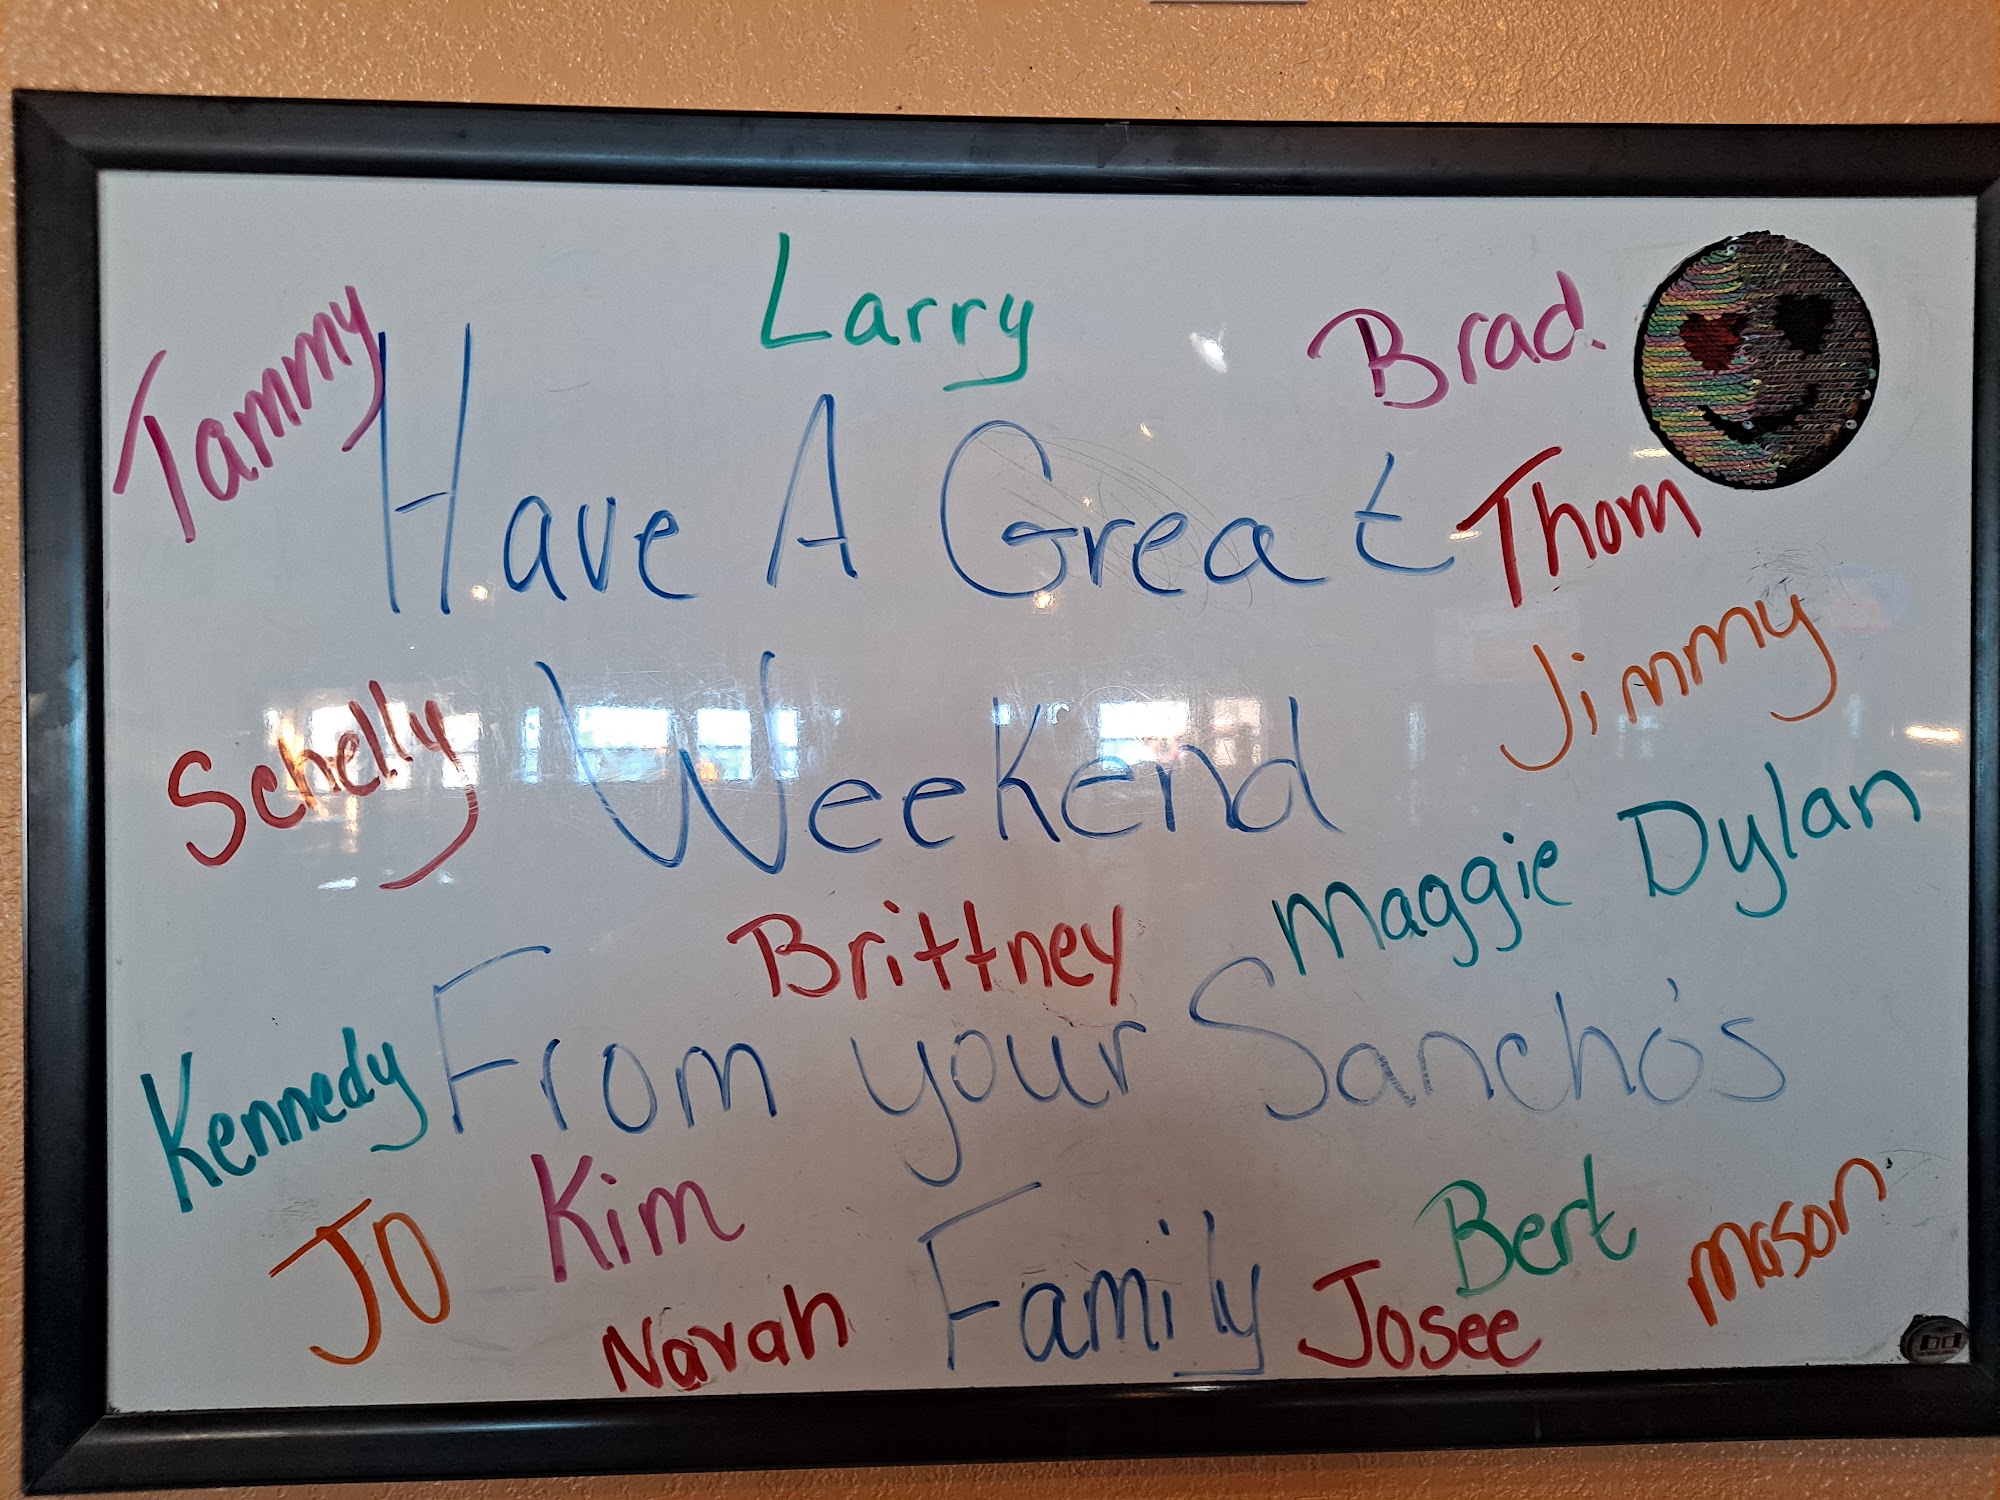 Larry
Tammy
Brad
Have A Great
Thom
Jimmy
Schelly
Weekend
Maggie Dylan
Brittney
From your Sancho's
Kennedy
Kim
JO
Bert
Mason
Navah
Family
Josee